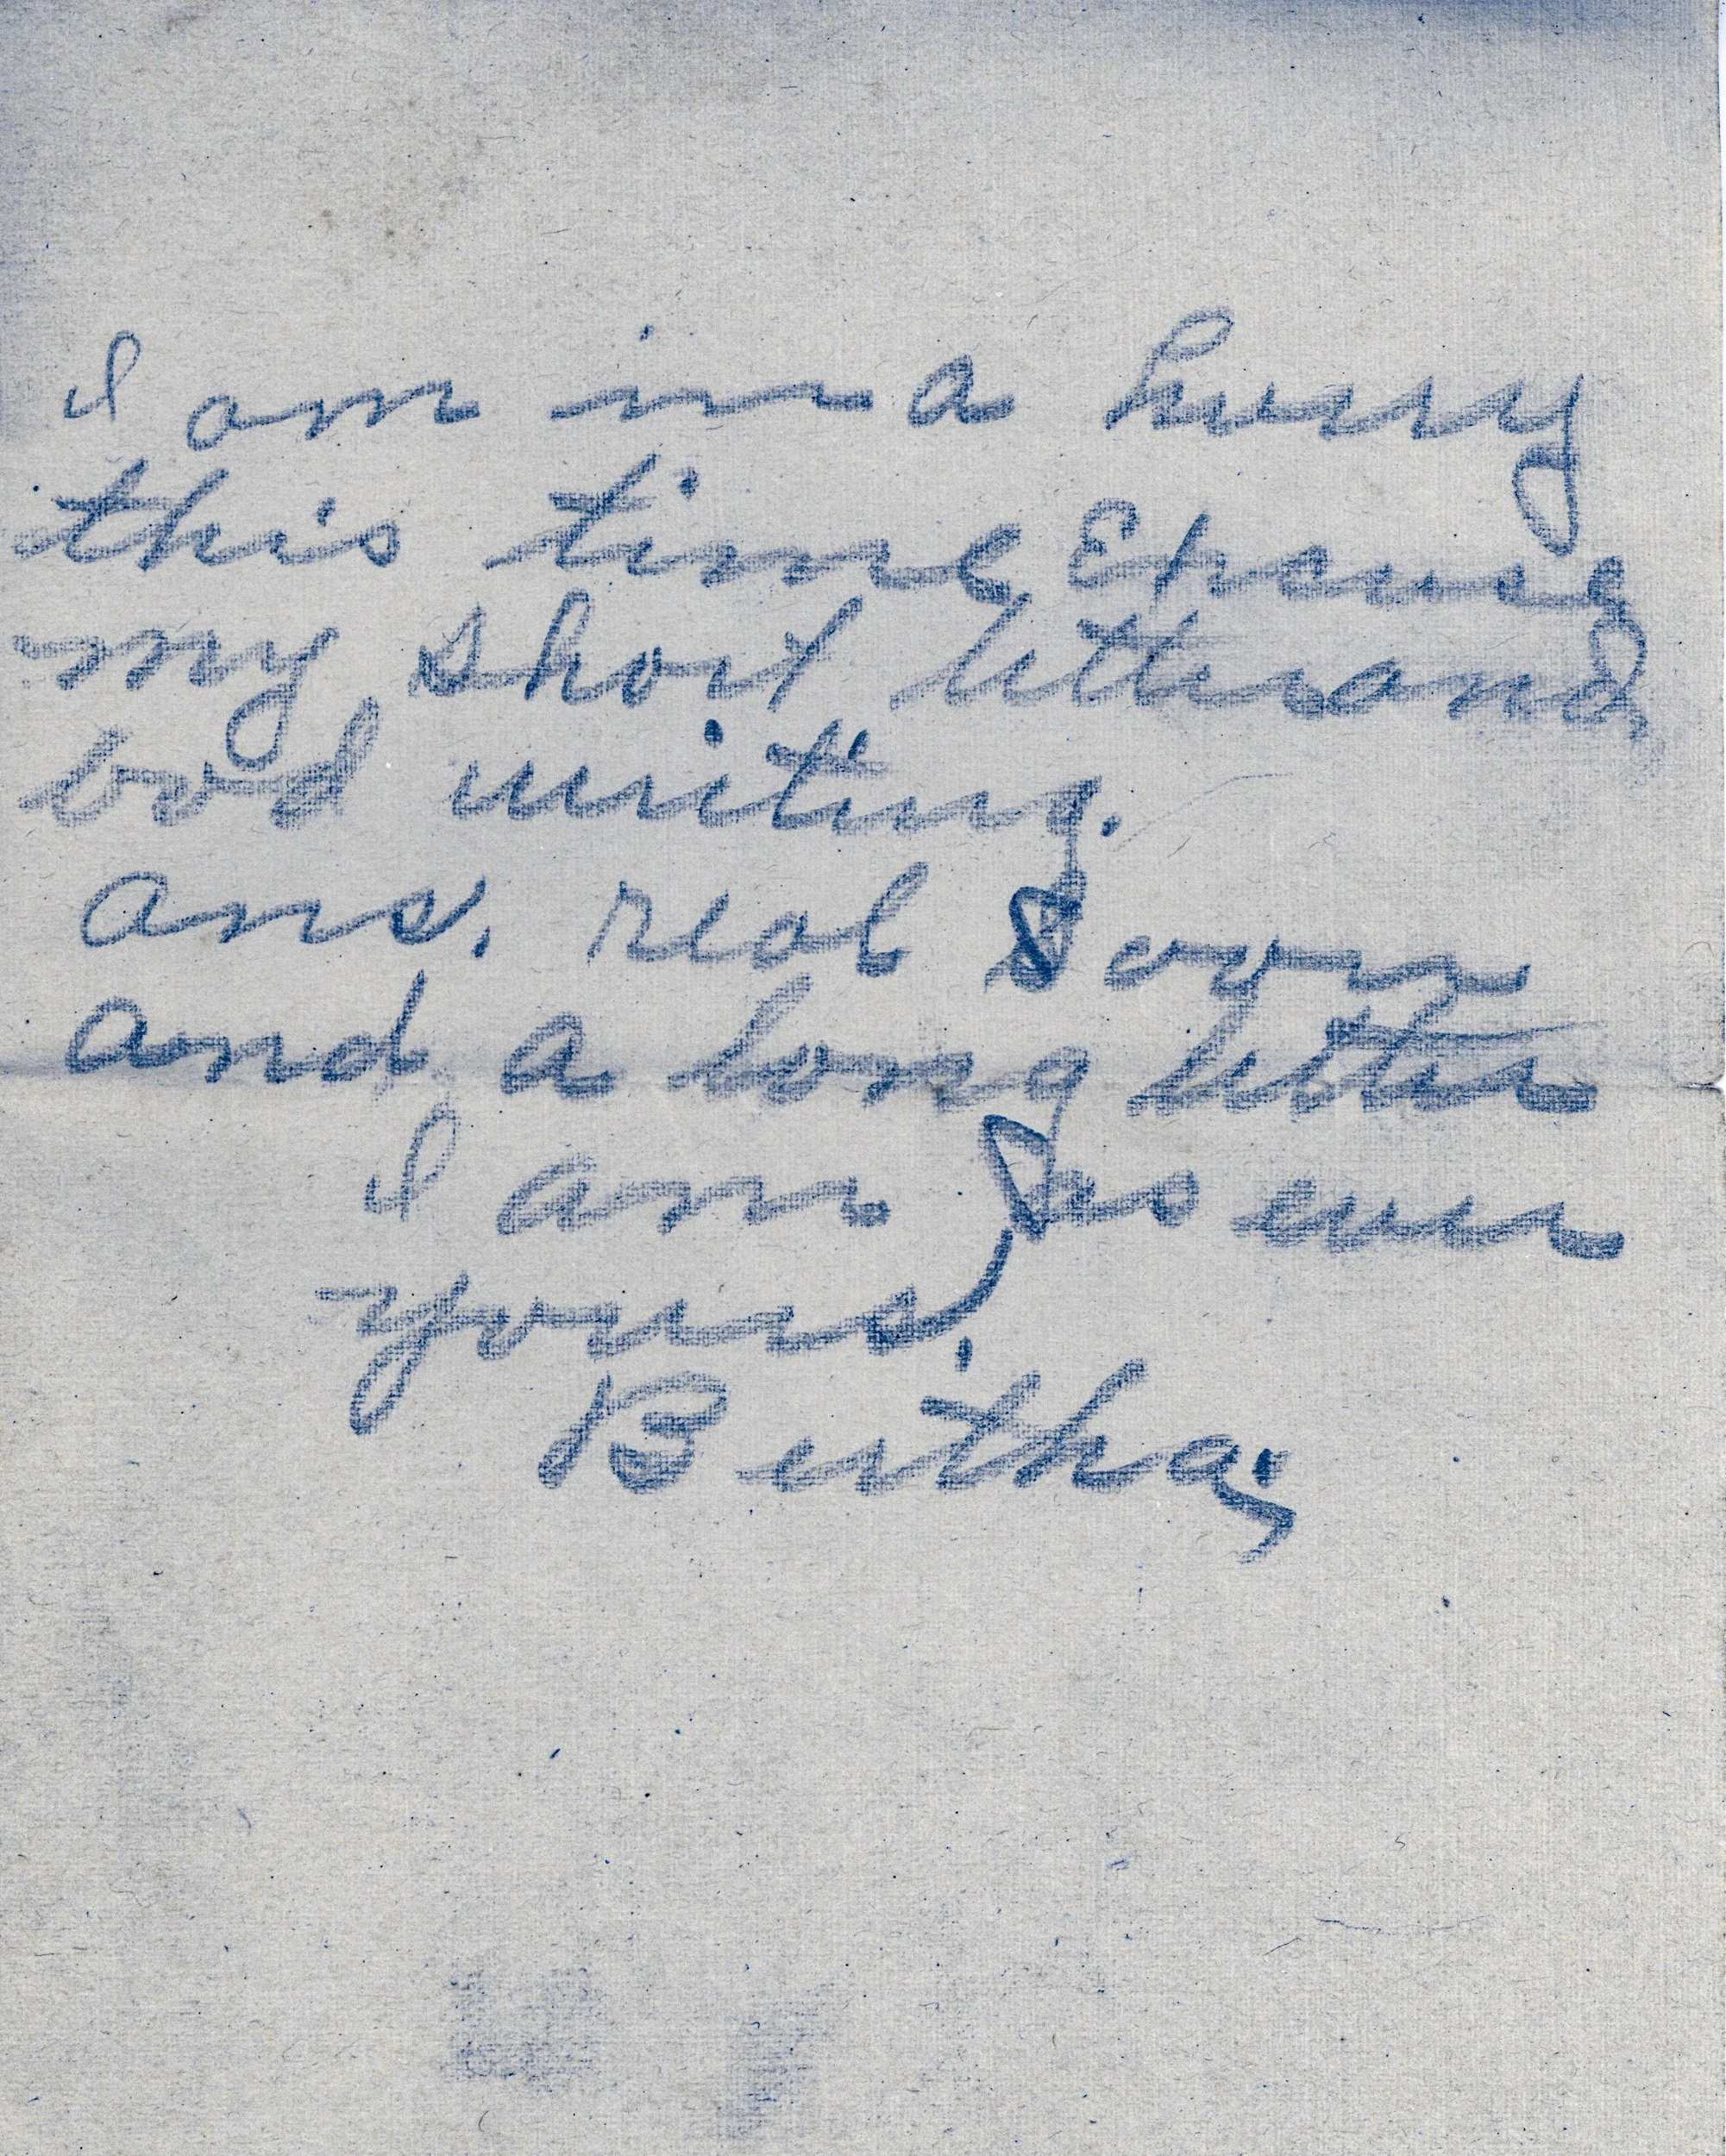 I am in a hurry
this time
my short letter and
bad writing.
ans. real soon
and a long letter
I am as ever
yours.
Bertha;